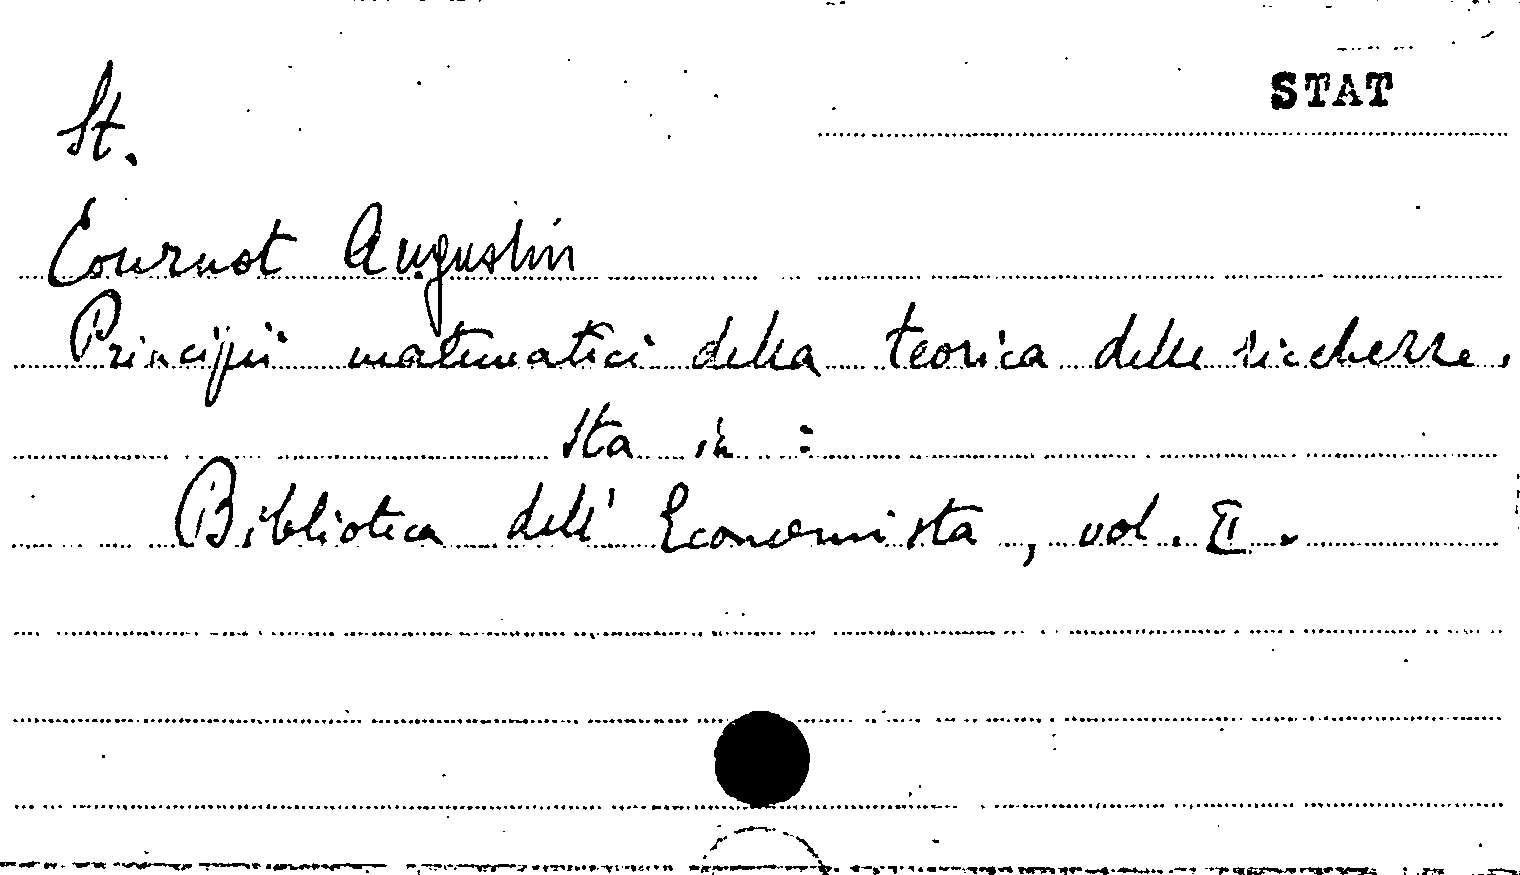 STAT
St.
Cournot Augustin
Principii matematici della teorica delle ricchezze.
sta in :
Biblioteca dell' Economista, vol. II.